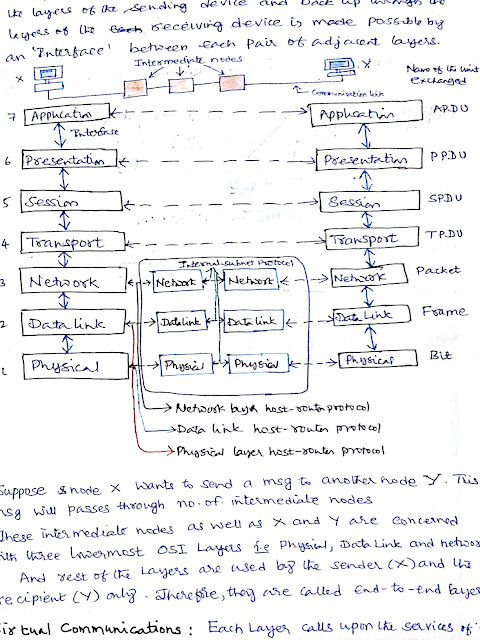 the layers of the sending device and back up through the
layers of the receiving device is made possible by
an 'Interface' between each pair of adjacent layers.
Intermediate nodes
X
Y
Name of the Unit
exchanged
Communication link
7 Application Application APDU
Interface
6 Presentation Presentation PPDU
5 Session Session SPDU
4 Transport Transport TPDU
Internal-subnet Protocol
3 Network Network Network Network Packet
2 Data Link Data link Data link Data Link Frame
1 Physical Physical Physical Physical Bit
Network layer host-router protocol
Data link host-router protocol
Physical layer host-router protocol
Suppose node X wants to send a msg to another node Y. This
msg will passes through no. of intermediate nodes
These intermediate nodes as well as X and Y are concerned
with three lowermost OSI Layers i.e Physical, Data Link and network
And rest of the Layers are used by the sender (X) and the
recipient (Y) only. Therefore, they are called end-to-end layers
Virtual Communications: Each Layer calls upon the services of